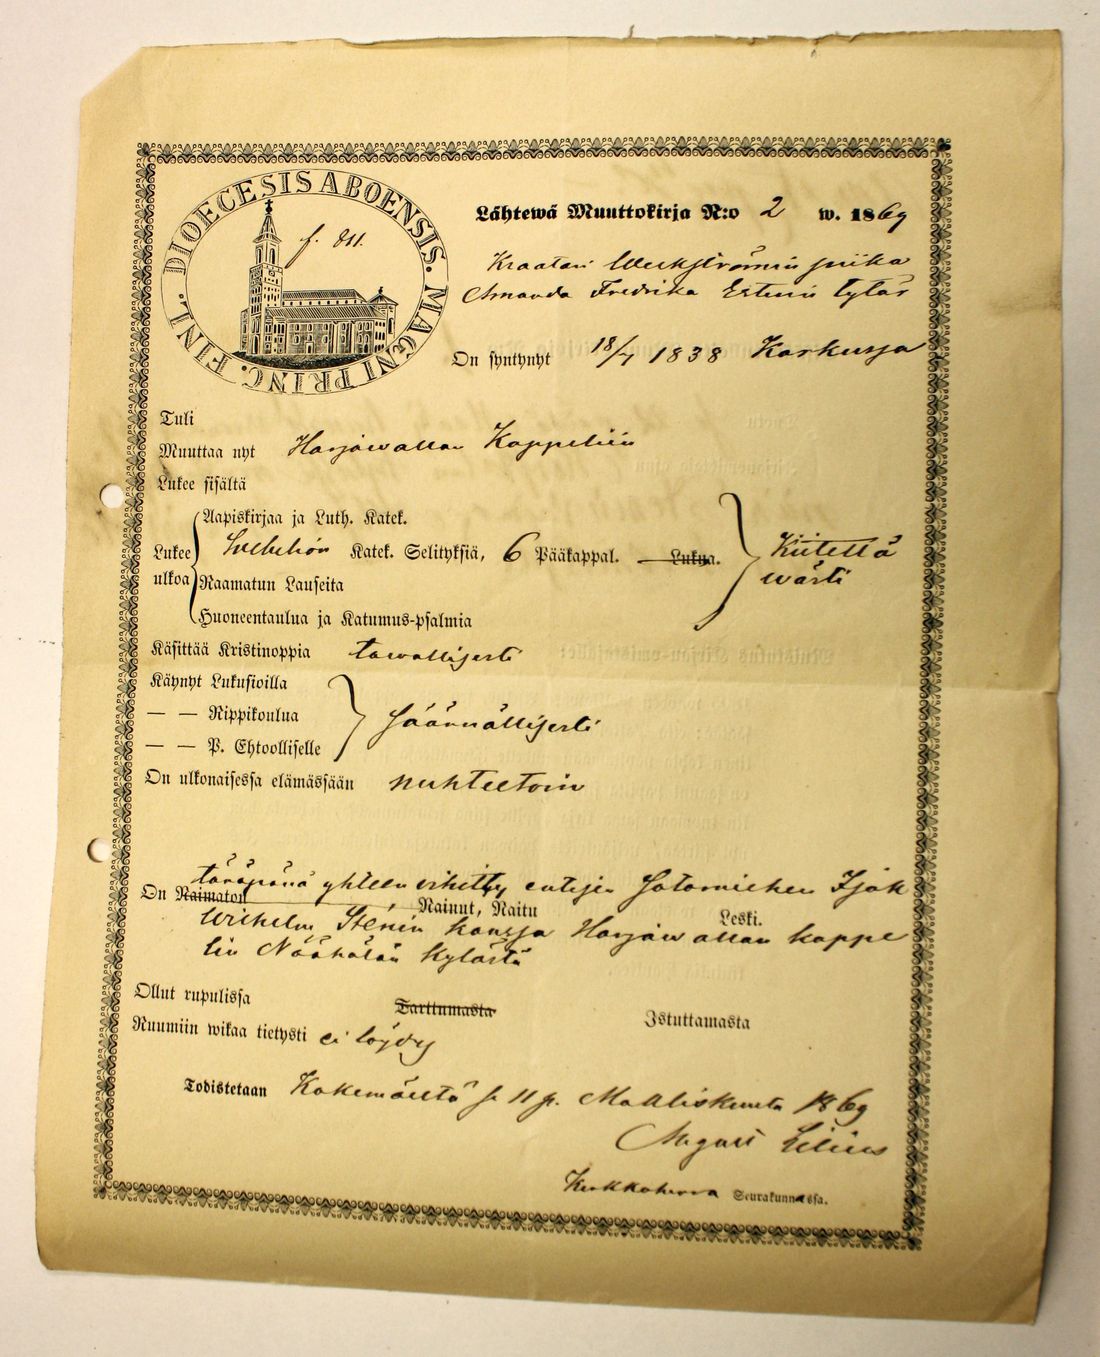 DIOECESIS ABOENSIS. MAGNI PRINC. FINL.
Lähtewä Muuttokirja N:o 2 w. 1869
Kraatari Werkströmin piika
Amanda Fredrika Estherin tytär
On syntynyt 18/7 1838 Karkussa
Tuli
Muuttaa nyt Harjawallan Kappeliin
Lukee sisältä
Aapiskirjaa ja Luth. Katek.
Lukee ulkoa Svebeliön Katek. Selityksiä, 6 Pääkappal. Lukua. Kiitettä
wästi
Raamatun Lauseita
Huoneentaulua ja Katumus-psalmia
Käsittää Kristinoppia tawallisesti
Käynyt Lukusioilla
— — Rippikoulua säännöllisesti
— — P. Ehtoolliselle
On ulkonaisessa elämässään nuhteetoin
tänäpänä yhteen vihitty entisen Sotamiehen Isak
On Naimaton Nainut, Naitu Leski.
Wilhelm Stenin kanssa Harjawallan kappe
lin Näähälän Kylästä
Ollut rupulissa Tarttumasta Istuttamasta
Ruumiin wikaa tietysti ei löydy
Todistetaan Kokemäeltä s. 11 p. Maaliskuuta 1869
August Lilius
Kirkkoherra Seurakunnassa.